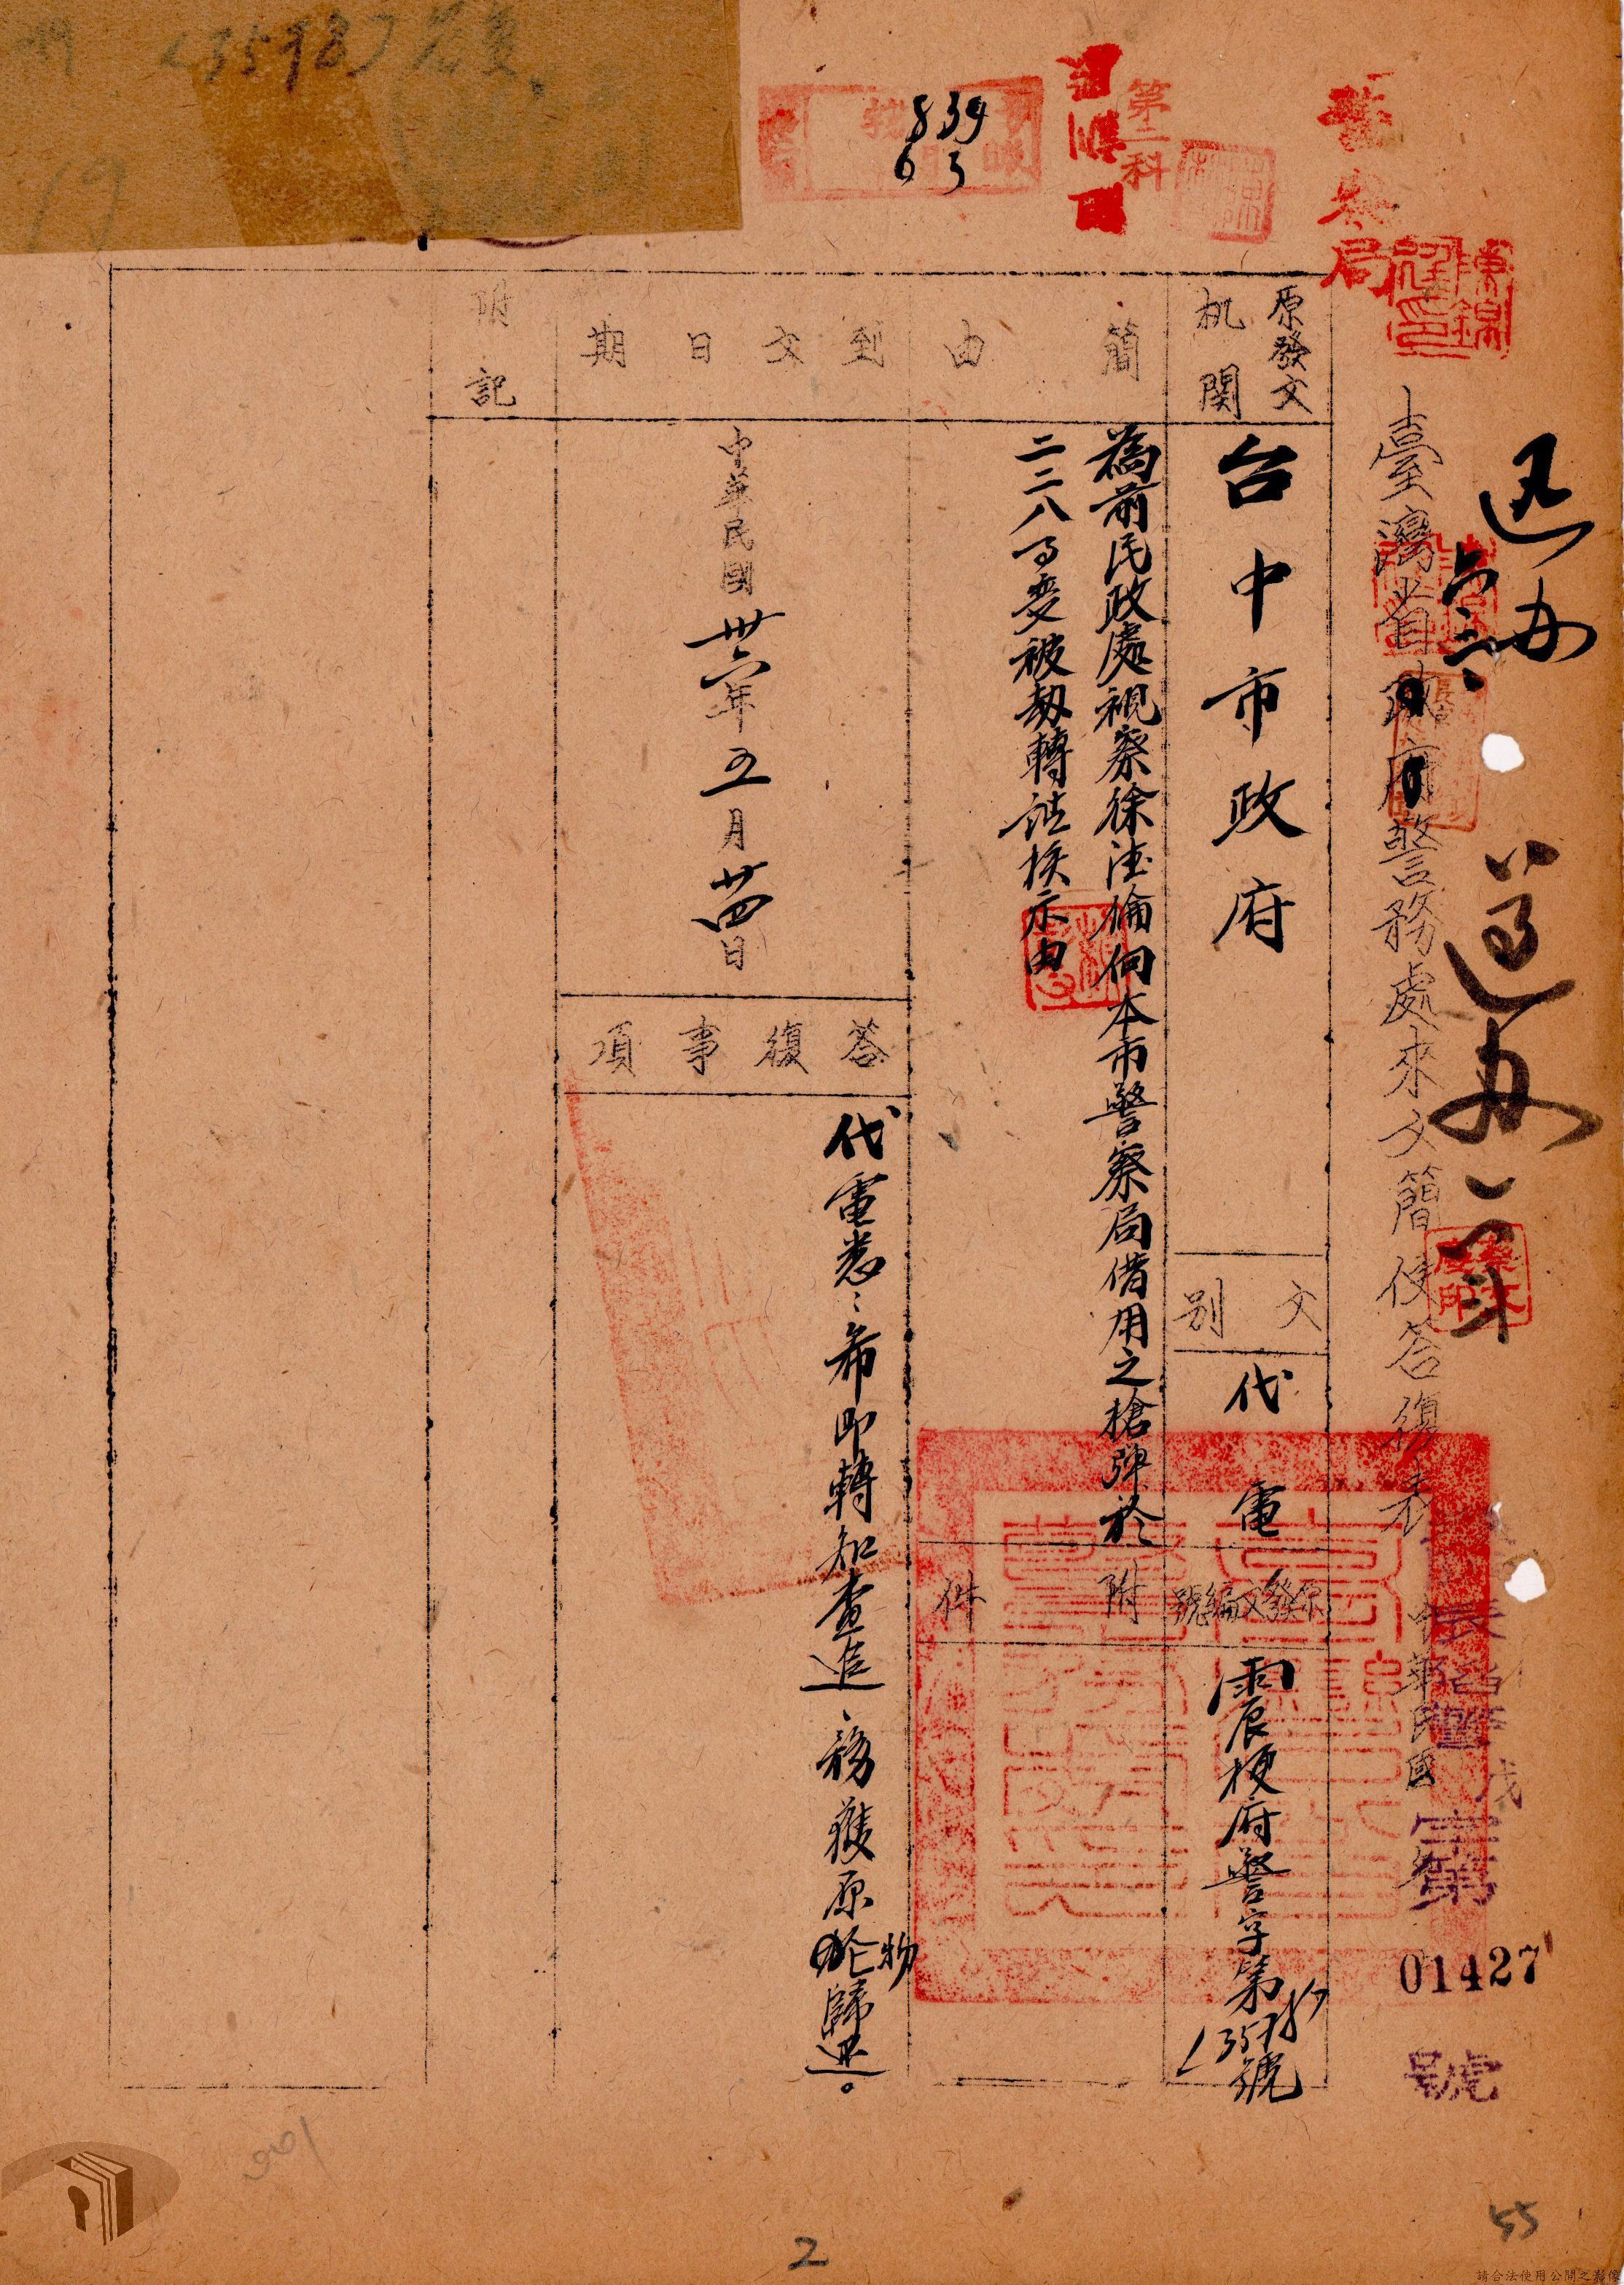 臺灣省政府警務處來文簡便答復表
中華民國
字第
01427
號
迅办
警察局
第二科
839
63
原發文机関
台中市政府
文別
代電
原發文編號
辰梗府警字第
號
簡由
為前民政處視察徐法倫向本市警察局借用之槍彈於
二二八事變被劫轉請核示由
附件
到文日期
中華民國卅六年五月廿四日
答復事項
代電悉：希即轉知查追、務獲原物歸還。
附記
2
55
請合法使用公開之影像